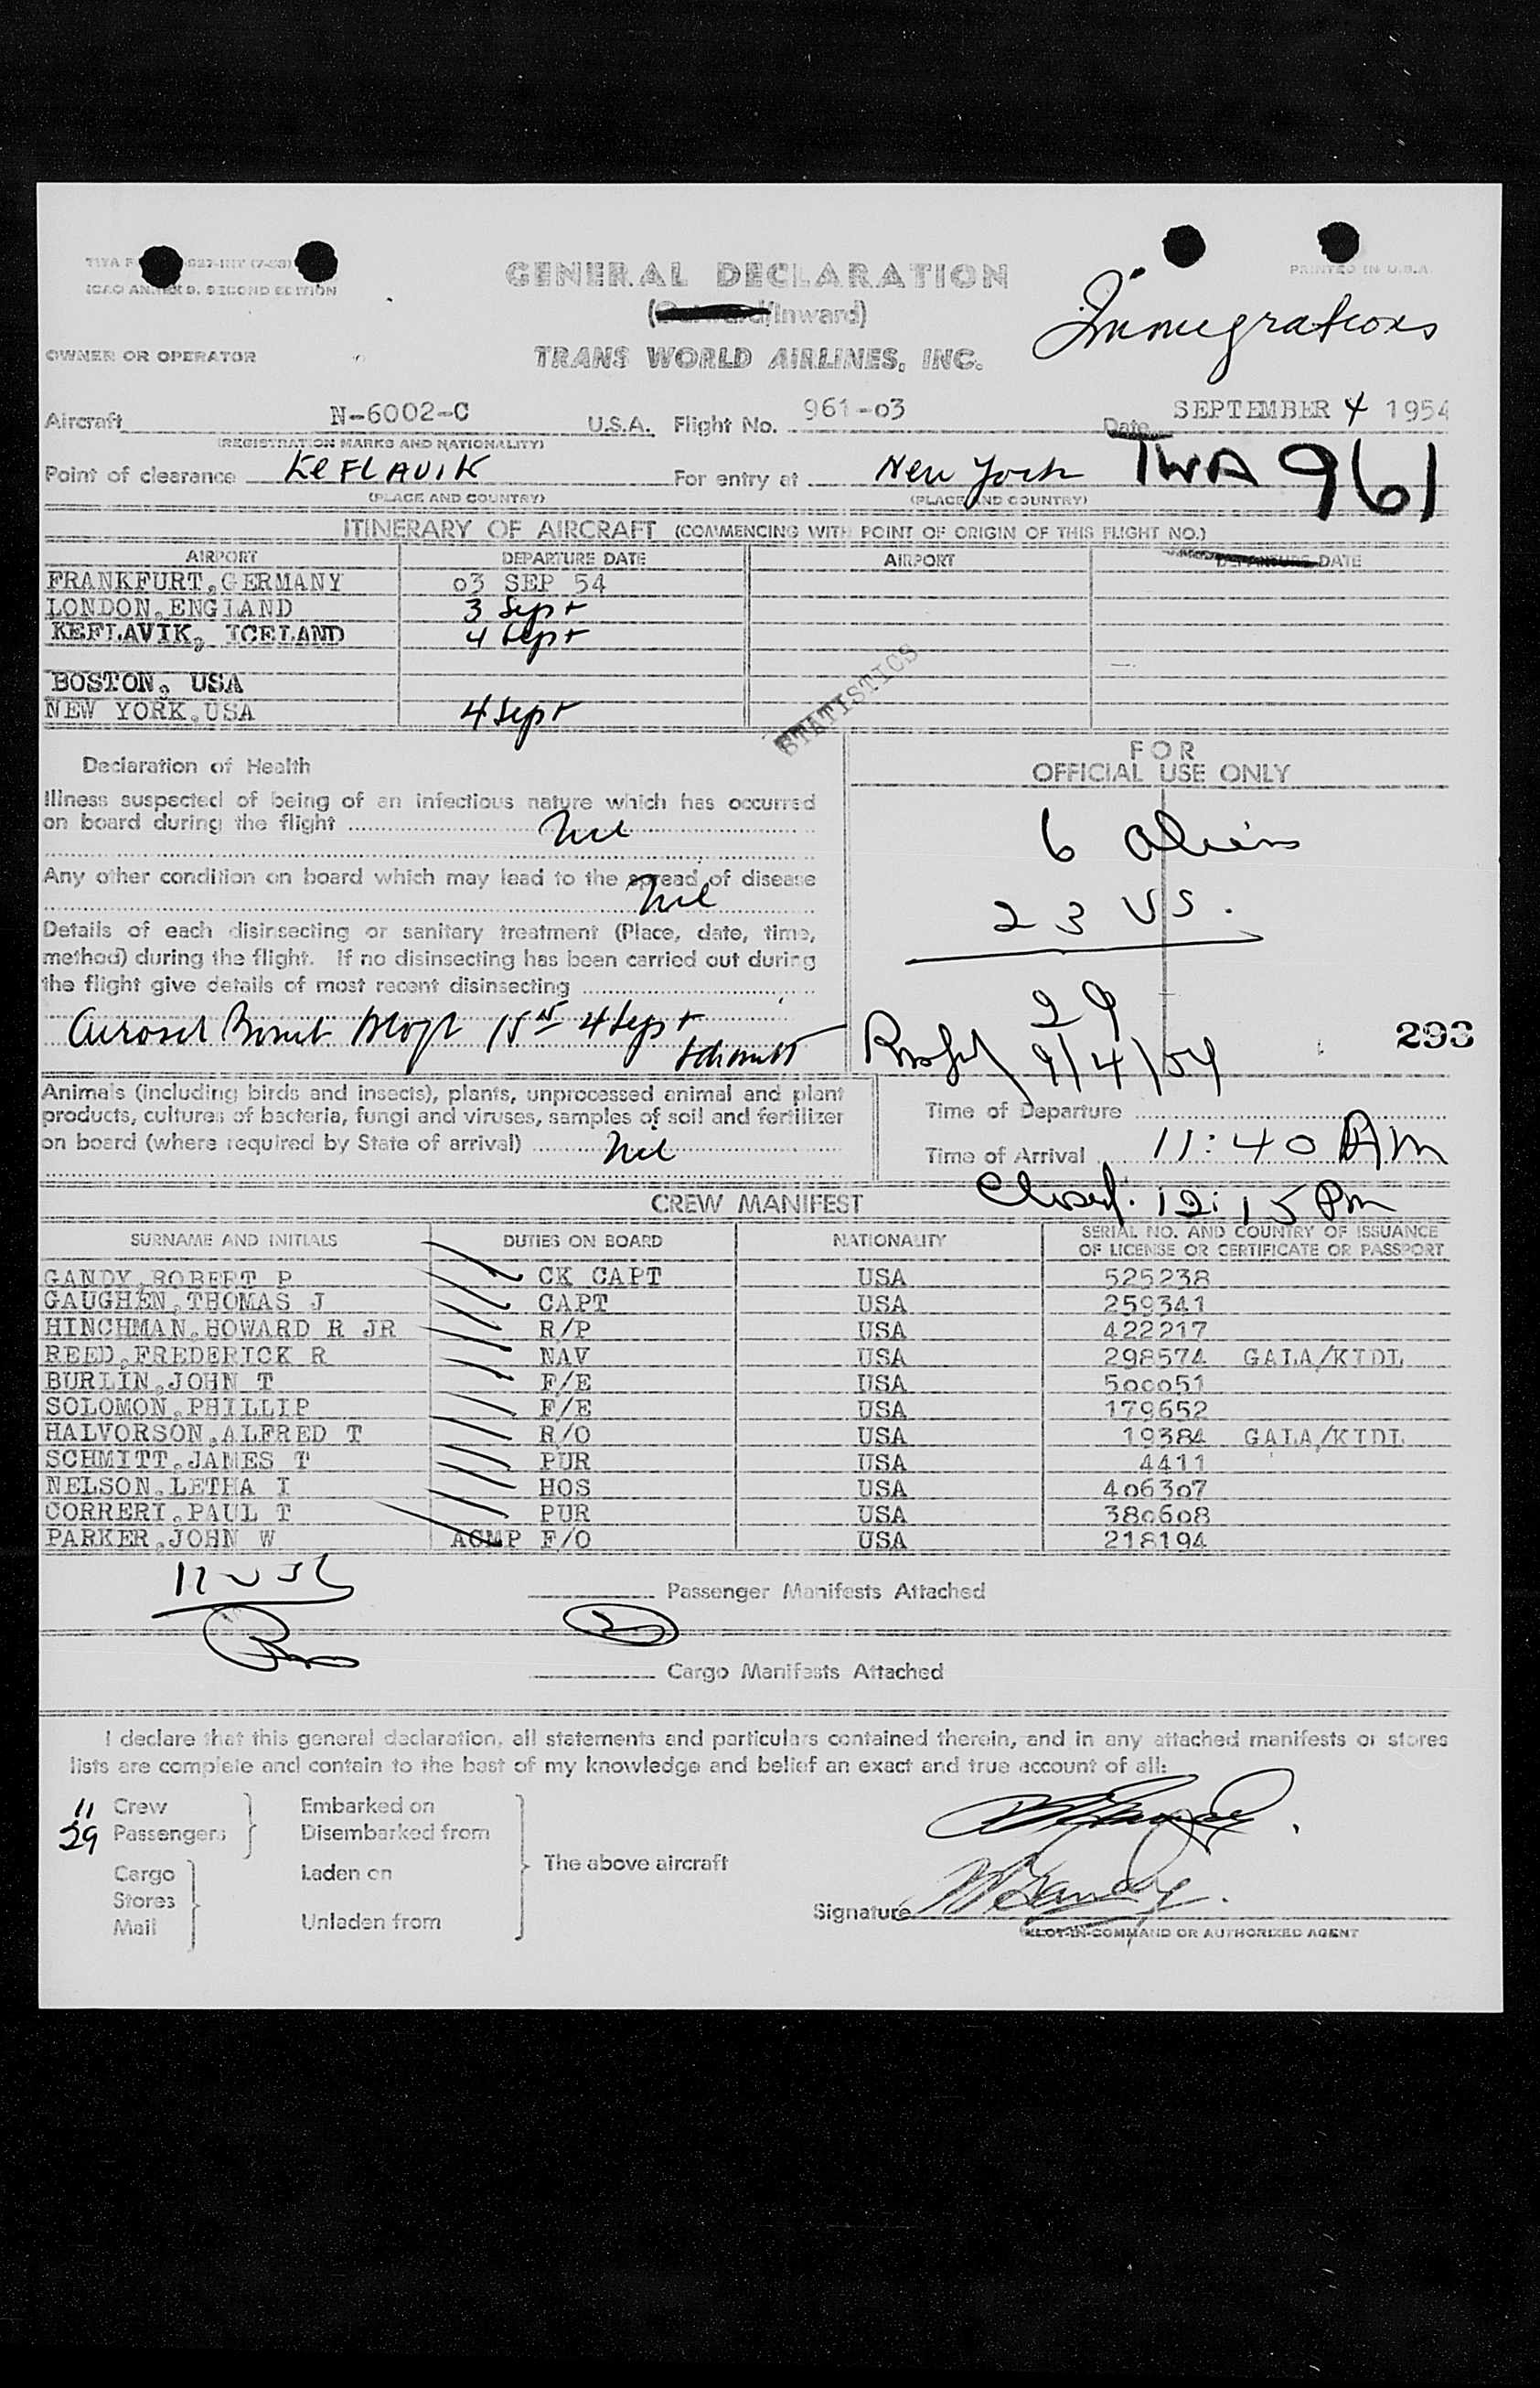 ICAO ANNEX 9. SECOND EDITION
PRINTED IN U.S.A.
GENERAL DECLARATION
(Outward/Inward)
Immigrations
OWNER OR OPERATOR
TRANS WORLD AIRLINES, INC.
Aircraft N-6002-C U.S.A. Flight No. 961-03 Date SEPTEMBER 4 1954
(REGISTRATION MARKS AND NATIONALITY)
TWA 961
Point of clearance KEFLAVIK For entry at New York
(PLACE AND COUNTRY) (PLACE AND COUNTRY)
ITINERARY OF AIRCRAFT (COMMENCING WITH POINT OF ORIGIN OF THIS FLIGHT NO.)
AIRPORT DEPARTURE DATE AIRPORT DEPARTURE DATE
FRANKFURT,GERMANY 03 SEP 54
LONDON,ENGLAND 3 Sept
KEFLAVIK, ICELAND 4 Sept
BOSTON, USA
NEW YORK,USA 4 Sept
STATISTICS
Declaration of Health
Illness suspected of being of an infectious nature which has occurred
on board during the flight Nil
Any other condition on board which may lead to the spread of disease
Nil
Details of each disinsecting or sanitary treatment (Place, date, time,
method) during the flight. If no disinsecting has been carried out during
the flight give details of most recent disinsecting
Aerosol Bomb 4 Sept
Schmitt
Animals (including birds and insects), plants, unprocessed animal and plant
products, cultures of bacteria, fungi and viruses, samples of soil and fertilizer
on board (where required by State of arrival) Nil
FOR
OFFICIAL USE ONLY
6 aliens
23 US.
29
9/4/54
293
Time of Departure
Time of Arrival 11:40 AM
Closed: 12:15 PM
CREW MANIFEST
SURNAME AND INITIALS DUTIES ON BOARD NATIONALITY SERIAL NO. AND COUNTRY OF ISSUANCE
OF LICENSE OR CERTIFICATE OR PASSPORT
GANDY,ROBERT P CK CAPT USA 525238
GAUGHEN,THOMAS J CAPT USA 259341
HINCHMAN,HOWARD R JR R/P USA 422217
REED,FREDERICK R NAV USA 298574 GALA/KIDL
BURLIN,JOHN T F/E USA 500051
SOLOMON,PHILLIP F/E USA 179652
HALVORSON,ALFRED T R/O USA 19384 GALA/KIDL
SCHMITT,JAMES T PUR USA 4411
NELSON,LETHA I HOS USA 406307
CORRERI,PAUL T PUR USA 380608
PARKER,JOHN W ACMP F/O USA 218194
11 USC
Passenger Manifests Attached
2
Cargo Manifests Attached
I declare that this general declaration, all statements and particulars contained therein, and in any attached manifests or stores
lists are complete and contain to the best of my knowledge and belief an exact and true account of all:
11 Crew Embarked on
29 Passengers Disembarked from
The above aircraft
Cargo Laden on
Stores
Mail Unladen from
Signature
PILOT-IN-COMMAND OR AUTHORIZED AGENT